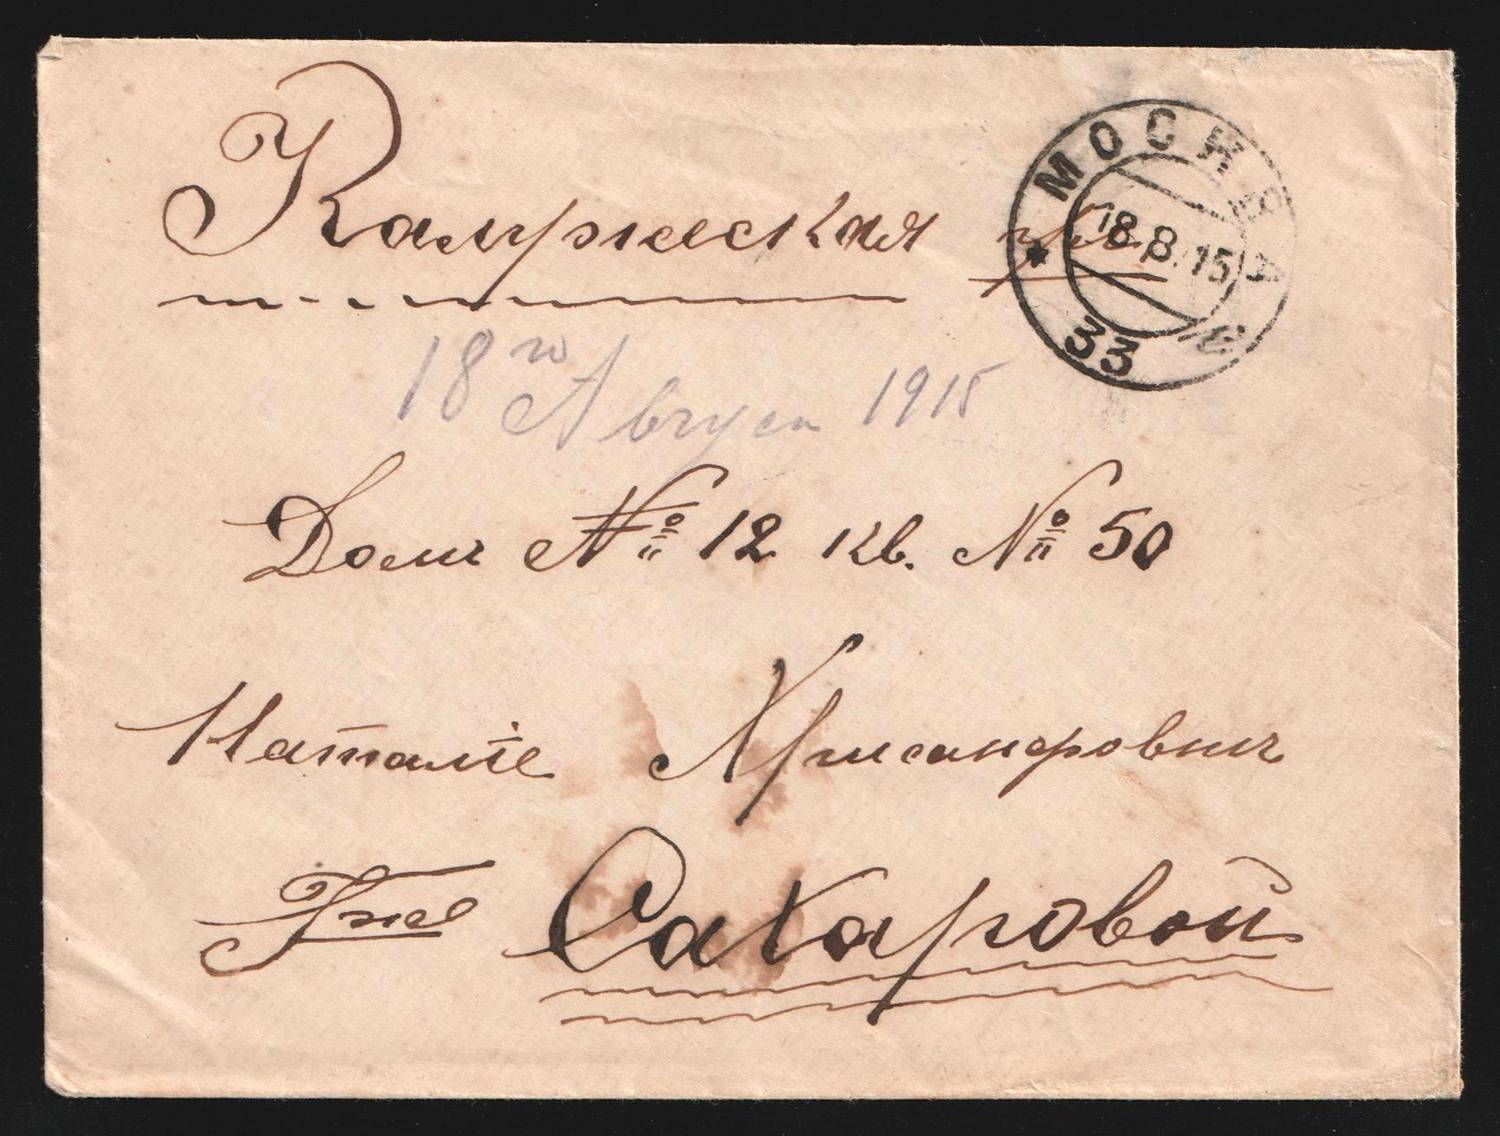 Калужская ул.
МОСКВА
18.8.15
33
18го Август 1915
Домъ № 12 кв. № 50
Наталiе Хрисанфовнъ
Гже Сахаровой